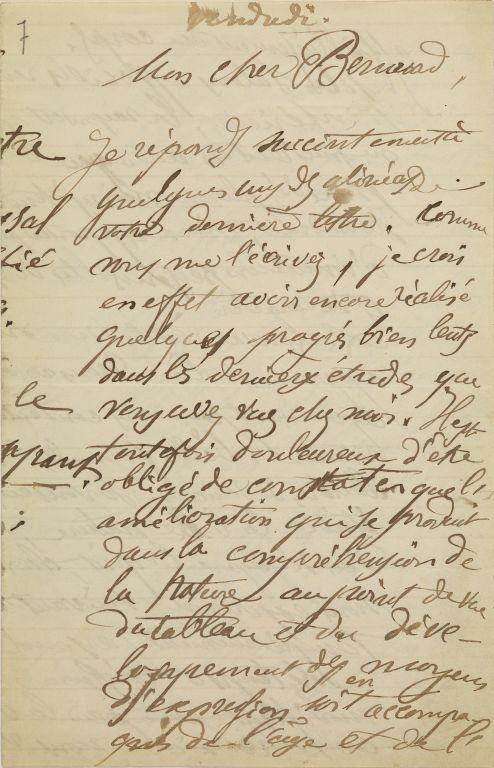 7
vendredi.
Mon cher Bernard,
tre
Je réponds succintement à
quelques uns des alinéas de
sal
votre dernière lettre. Comme
lié
vous me l'écrivez, je crois
en effet avoir encore réalisé
quelques progrès bien lents
dans les dernières études que
le
vous avez vues chez moi. Il est
toutefois douloureux d'être
obligé de constater que l'
;
amélioration qui se produit
dans la compréhension de
la Nature au point de vue
du tableau et du déve-
loppement des moyens
en
d'expression soit accompa-
gnés de l'âge et de l'